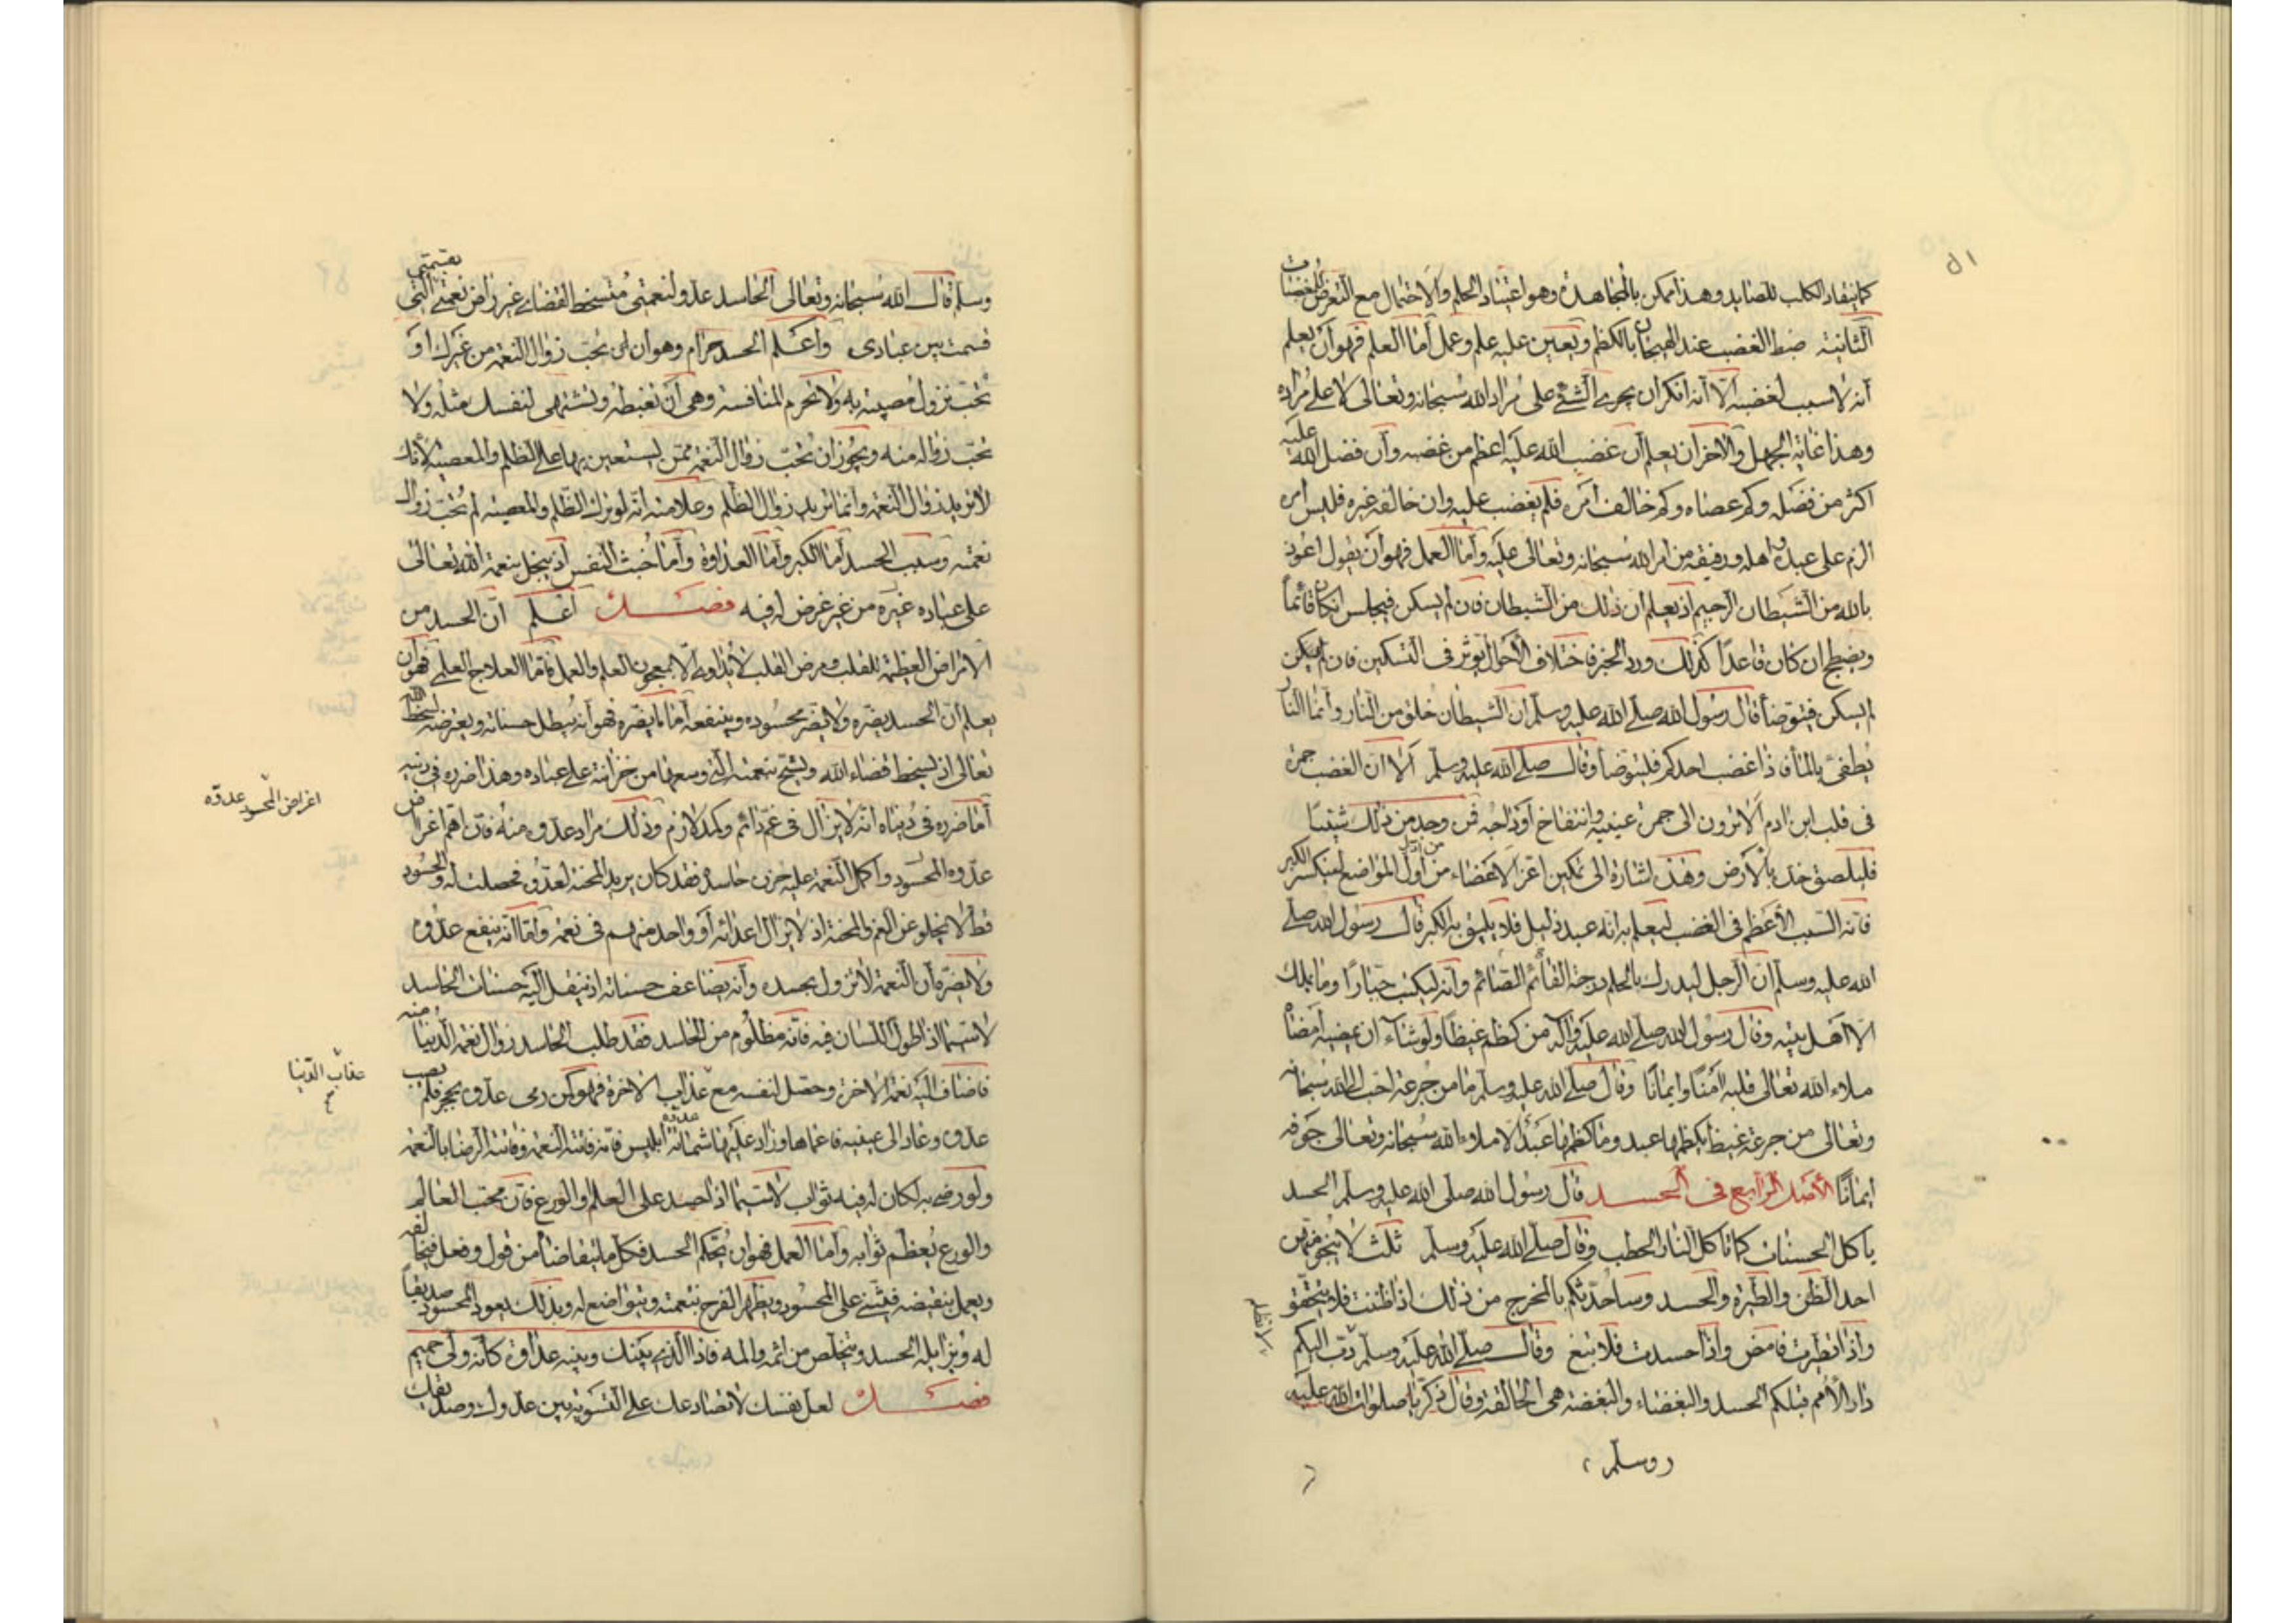 ٥١
كما ينقاد الكلب للصايد وهذا ممكن بالمجاهدة وهو اعتياد الحلم والاحتمال مع التعرض للمغضبات
الثانية ضبط الغضب عند الهيجان بالكظم ويعين عليه علم وعمل أما العلم فهو أن يعلم
أنه لا سبب لغضبه إلا أنه انكر ان يجري الشئ على مراد الله سبحانه وتعالى لا على مراده
وهذا غاية الجهل والآخر أن يعلم أن غضب الله عليه اعظم من غضبه وأن فضل الله عليه
اكثر من فضله وكم عصاه وكم خالف أمره فلم يغضب عليه وان خالفه غيره فليس أمره
الزم على عبده واهله ورفيقه من امر الله سبحانه وتعالى عليه وأما العمل فهو أن يقول اعوذ
بالله من الشيطان الرجيم اذ يعلم ان ذلك من الشيطان فان لم يسكن فيجلس ان كان قائماً
ويضطجع ان كان قاعداً كذلك ورد الخبر فاختلاف الأحوال يوثر في التسكين فان لم يكن
لم يسكن فيتوضأ قال رسول الله صلى الله عليه وسلم ان الشيطان خلق من النار وأنما النار
يطفئ بالماء فاذا غضب احدكم فليتوضأ وقال صلى الله عليه وسلم ألا ان الغضب جمرة
في قلب ابن ادم ألا ترون الى حمرة عينيه وانتفاخ أوداجه فمن وجد من ذلك شيئاً
فليلصق خده بالأرض وهذا اشارة الى تمكين اعز الاعضاء من أول المواضع لينكسر الكبر
من اذل
فانه السبب الأعظم في الغضب ليعلم به انه عبد ذليل فلا يليق به الكبر قال رسول الله صلى
الله عليه وسلم ان الرجل ليدرك بالحلم درجة القائم الصائم وأنه ليكتب جباراً وما يملك
الا اهل بيته وقال رسول الله صلى الله عليه وآله من كظم غيظاً ولو شاء ان يمضيه أمضاه
ملاء الله تعالى قلبه أمناً وايماناً وقال صلى الله عليه وسلم ما من جرعة احب الى الله سبحانه
وتعالى من جرعة غيظ يكظمها عبد وما كظمها عبد الا ملاء الله سبحانه وتعالى جوفه
ايماناً الأصل الرابع في الحسد قال رسول الله صلى الله عليه وسلم الحسد
ياكل الحسنات كما تاكل النار الحطب وقال صلى الله عليه وسلم ثلث لا ينجو منهن
احد الظن والطيرة والحسد وساحدثكم بالمخرج من ذلك اذا ظننت فلا تحقق
واذا تطيرت فامض واذا حسدت فلا تبغ وقال صلى الله عليه وسلم دب اليكم
داء الأمم قبلكم الحسد والبغضاء والبغضة هي الحالقة وقال زكريا صلوات الله عليه
وسلم
وسلم قال الله سبحانه وتعالى الحاسد عدو لنعمتي متسخط لقضائي غير راض نعمتي التي
بقسمتي
قسمت بين عبادي واعلم الحسد حرام وهو ان تحب زوال النعمة من غيرك او
تحب نزول مصيبة به ولا تحرم المنافسة وهي أن تغبطه وتشتهي لنفسك مثله ولا
تحب زواله منه ويجوز ان تحب زوال النعمة ممن يستعين بها على الظلم والمعصية لأنك
لا تريد زوال النعمة وانما تريد زوال الظلم وعلامته انه لو ترك الظلم والمعصية لم تحب زوال
نعمته وسبب الحسد أما الكبر وأما العداوة وأما خبث النفس اذ يبخل بنعمة الله تعالى
على عباده غيره من غير غرض له فيه فصل اعلم ان الحسد من
الامراض العظيمة للقلب ومرض القلب لا يداوي الا بمعجون العلم والعمل فاما العلاج العلمي فهو أن
يعلم أن الحسد يضره ولا يضر محسوده وينفعه أما ما يضره فهو أنه يبطل حسناته ويعرضه لسخط الله
تعالى اذ يسخط قضاء الله ويشح بنعمته التي وسعها من خزانته على عباده وهذا ضرره في دينه
أما ضرره في دنياه انه لا يزال في غم دائم وكمد لازم وذلك مراد عدوه منه فان اهم اغراض
عدوه المحسود واكمل النعمة عليه حزن حاسده فقد كان يريد المحنة لعدوه فحصلت له والحسود
قط لا يخلو عن الغم والمحنة اذ لا يزال اعدائه أو واحد منهم في نعمة وأما أنه ينفع عدوه
ولا يضره فأن النعمة لا تزول بحسده وأنه يضاعف حسناته اذ ينقل اليه حسنات الحاسد
لا سيما اذا طول اللسان فيه فانه مظلوم من الحاسد فقد طلب الحاسد زوال نعمة الدنيا منه
فاضاف اليه نعمة الاخرة وحصل لنفسه مع عذاب الاخرة فهو كمن رمى عدوه بحجر فلم يصب
عدوه وعاد الى عينيه فاعماها وزاد عليها شماتة عدوه ابليس فانه فاتته النعمة وفاتته الرضا بالنعمة
ولو رضي به لكان له فيه ثواب لا سيما اذا حسد على العلم والورع فان محب العالم
والورع يعظم ثوابه وأما العمل فهو ان يحكم الحسد فكل ما يتقاضاه من قول وفعل فيخالفه
ويعمل بنقيضه فيثني على المحسود ويظهر الفرح بنعمته ويتواضع له وبذلك يعود المحسود صديقاً
له ويزايله الحسد ويتخلص من اثمه والمه فاذا الذي بينك وبينه عداوة كأنه ولي حميم
فصل لعل نفسك لا تضادعك على التسوية بين عدوك وصديقك
اغراض المحسود عدوه
عقاب الدنيا